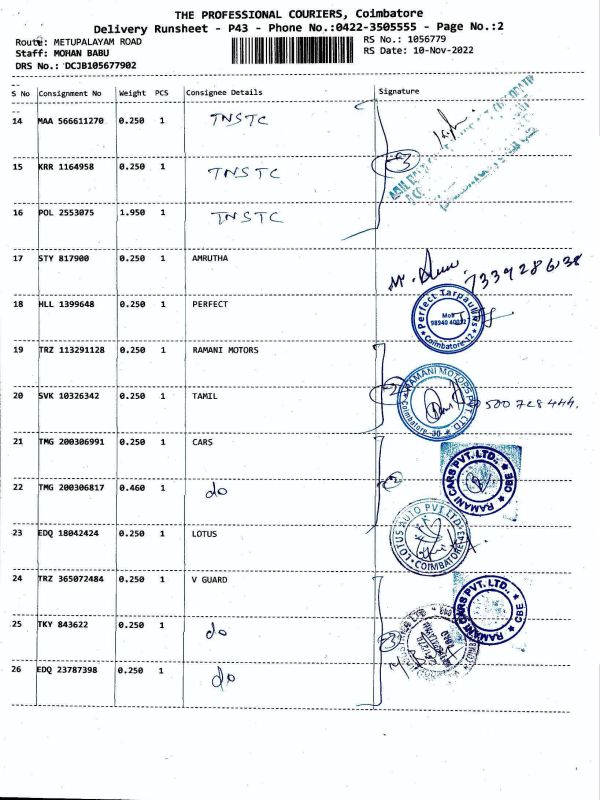 THE PROFESSIONAL COURIERS, Coimbatore
Delivery Runsheet - P43 - Phone No.:0422-3505555 - Page No.:2
Route: METUPALAYAM ROAD RS No.: 1056779
Staff: MOHAN BABU RS Date: 10-Nov-2022
DRS No.: DCJB105677902
S No Consignment No Weight PCS Consignee Details Signature
14 MAA 566611270 0.250 1 TNSTC
15 KRR 1164958 0.250 1 TNSTC
3
16 POL 2553075 1.950 1 TNSTC
17 STY 817900 0.250 1 AMRUTHA
7339286138
18 HLL 1399648 0.250 1 PERFECT
Perfect Tarpaulins
Mob
98940 40022
Coimbatore-12
19 TRZ 113291128 0.250 1 RAMANI MOTORS
20 SVK 10326342 0.250 1 TAMIL
2
RAMANI MOTORS PVT LTD
Coimbatore-30
21 TMG 200306991 0.250 1 CARS
RAMANI CARS PVT. LTD., CBE
22 TMG 200306817 0.460 1 do
2
23 EDQ 18042424 0.250 1 LOTUS
LOTUS AUTO PVT LTD
COIMBATORE
24 TRZ 365072484 0.250 1 V GUARD
RAMANI CARS PVT. LTD., CBE
25 TKY 843622 0.250 1 do
3
26 EDQ 23787398 0.250 1 do